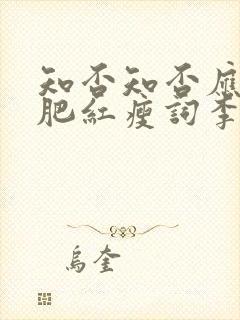 知否知否應
肥紅瘦詞李
烏奎